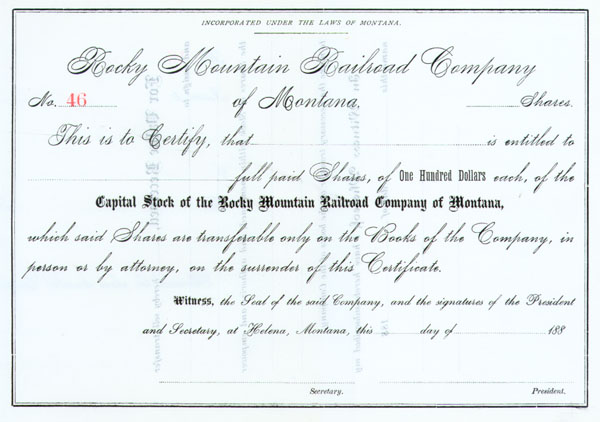 INCORPORATED UNDER THE LAWS OF MONTANA.
Rocky Mountain Railroad Company
No. 46 of Montana, Shares.
This is to Certify, that is entitled to
full paid Shares, of One Hundred Dollars each, of the
Capital Stock of the Rocky Mountain Railroad Company of Montana,
which said Shares are transferable only on the Books of the Company, in
person or by attorney, on the surrender of this Certificate.
Witness, the Seal of the said Company, and the signatures of the President
and Secretary, at Helena, Montana, this day of 188
Secretary. President.